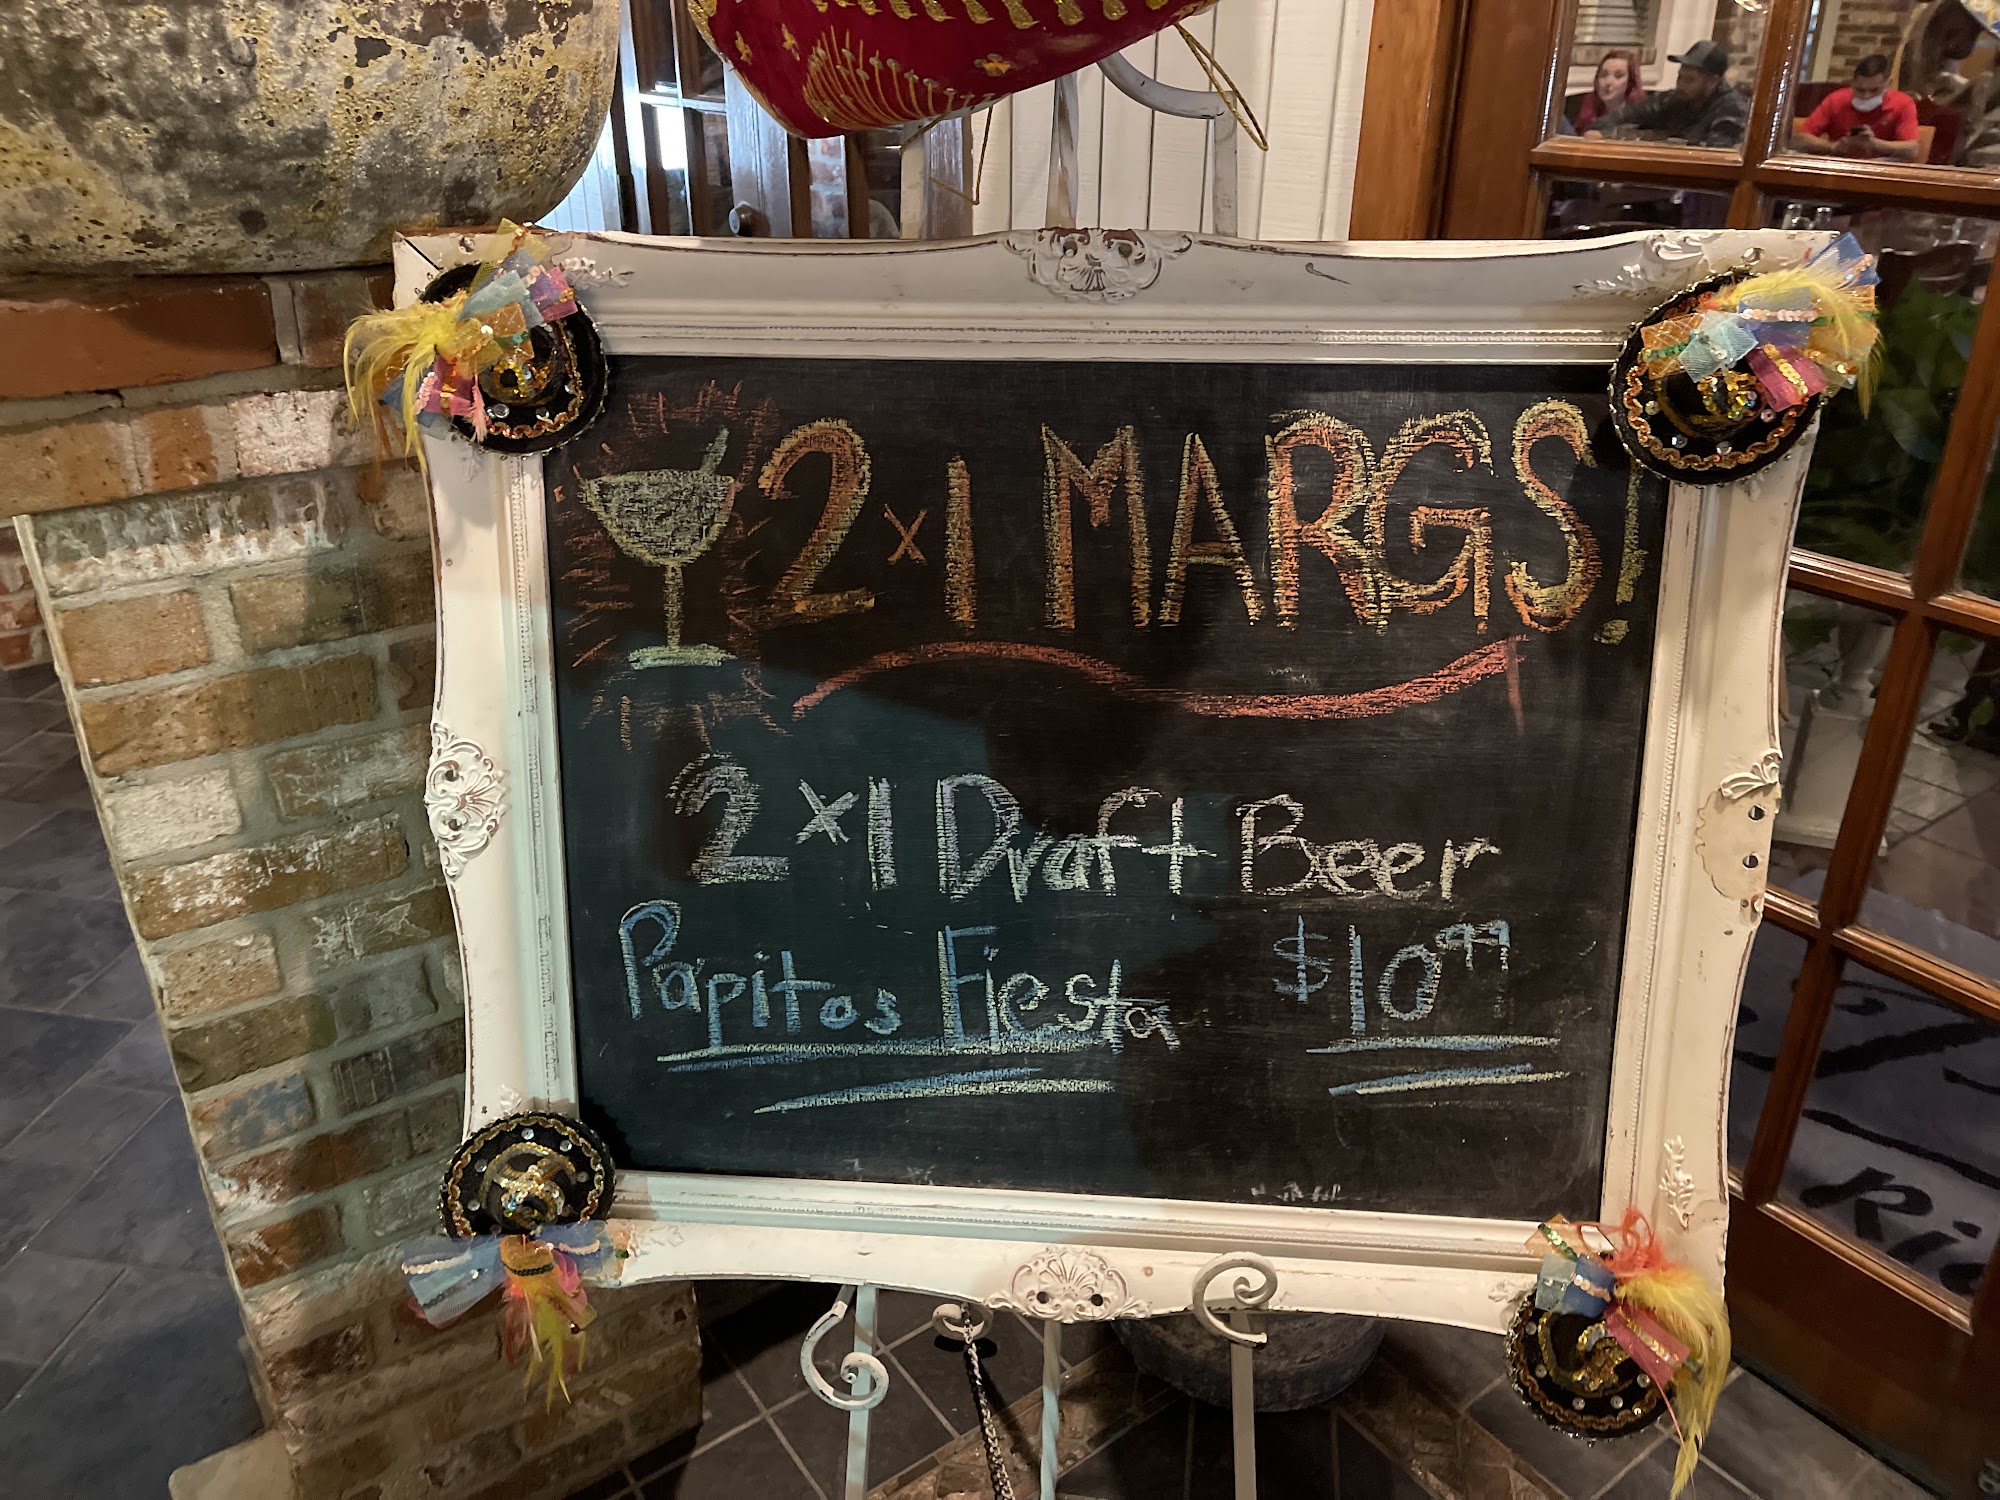 2 x 1 MARGS!
2 x 1 Draft Beer
Papitos Fiesta $10.99